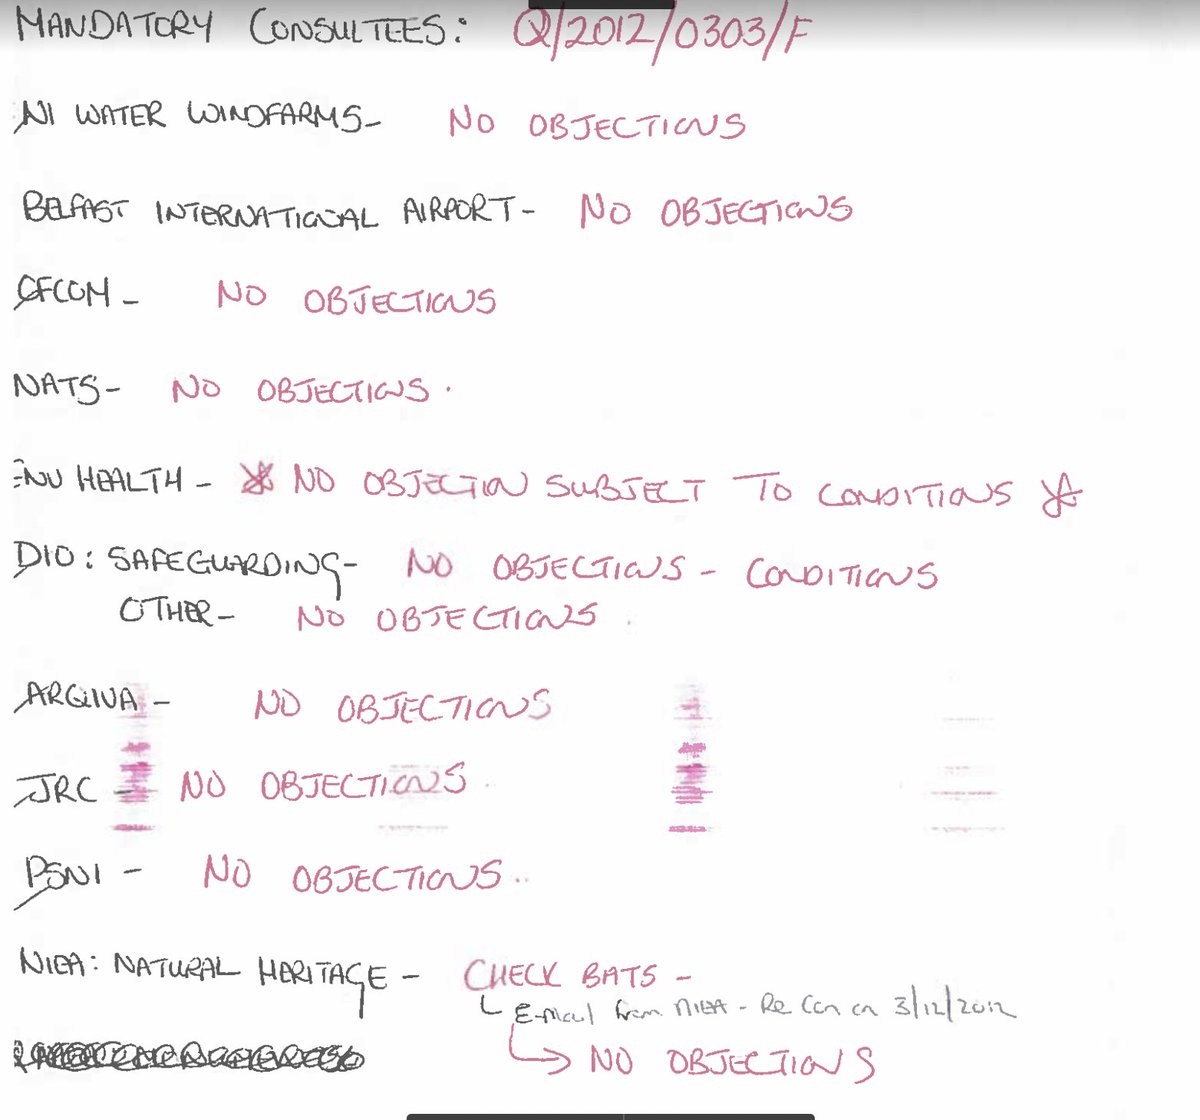 MANDATORY CONSULTEES: Q/2012/0303/F
NI WATER WINDFARMS- NO OBJECTIONS
BELFAST INTERNATIONAL AIRPORT- NO OBJECTIONS
OFCOM - NO OBJECTIONS
NATS- NO OBJECTIONS.
ENV HEALTH - * NO OBJECTION SUBJECT TO CONDITIONS *
DIO: SAFEGUARDING- NO OBJECTIONS - CONDITIONS
OTHER- NO OBJECTIONS
ARQIVA - NO OBJECTIONS
JRC - NO OBJECTIONS
PSNI - NO OBJECTIONS..
NIEA: NATURAL HERITAGE - CHECK BATS -
E-mail from NIEA - Re Con on 3/12/2012
NO OBJECTIONS